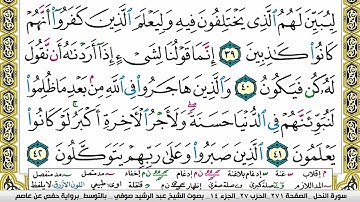 لِيُبَيِّنَ لَهُمُ ٱلَّذِى يَخْتَلِفُونَ فِيهِ وَلِيَعْلَمَ ٱلَّذِينَ كَفَرُوٓا۟ أَنَّهُمْ
كَانُوا۟ كَـٰذِبِينَ ٣٩ إِنَّمَا قَوْلُنَا لِشَىْءٍ إِذَآ أَرَدْنَـٰهُ أَن نَّقُولَ
لَهُۥ كُن فَيَكُونُ ٤٠ وَٱلَّذِينَ هَاجَرُوا۟ فِى ٱللَّهِ مِنۢ بَعْدِ مَا ظُلِمُوا۟
لَنُبَوِّئَنَّهُمْ فِى ٱلدُّنْيَا حَسَنَةً ۖ وَلَأَجْرُ ٱلْـَٔاخِرَةِ أَكْبَرُ ۚ لَوْ كَانُوا۟
يَعْلَمُونَ ٤١ ٱلَّذِينَ صَبَرُوا۟ وَعَلَىٰ رَبِّهِمْ يَتَوَكَّلُونَ ٤٢
سورة النحل الصفحة ٢٧١ الحزب ٢٧ الجزء ١٤ بصوت الشيخ عبد الرشيد صوفي بالتوسط برواية حفص عن عاصم